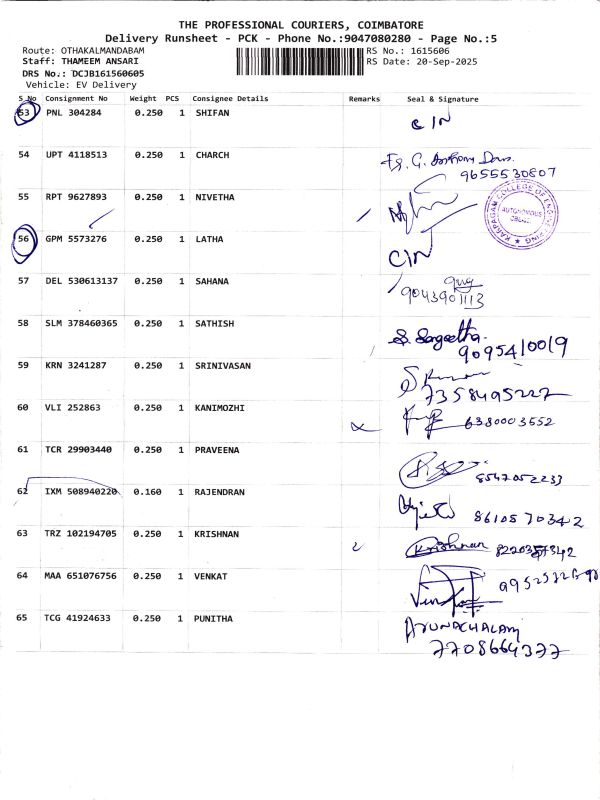 THE PROFESSIONAL COURIERS, COIMBATORE
Delivery Runsheet - PCK - Phone No.:9047080280 - Page No.:5
Route: OTHAKALMANDABAM RS No.: 1615606
Staff: THAMEEM ANSARI RS Date: 20-Sep-2025
DRS No.: DCJB161560605
Vehicle: EV Delivery
S No Consignment No Weight PCS Consignee Details Remarks Seal & Signature
53 PNL 304284 0.250 1 SHIFAN CIN
54 UPT 4118513 0.250 1 CHARCH Fr. G. Anthony
9655530807
55 RPT 9627893 0.250 1 NIVETHA
KARPAGAM COLLEGE OF ENGINEERING AUTONOMOUS
56 GPM 5573276 0.250 1 LATHA CIN
57 DEL 530613137 0.250 1 SAHANA
9043901113
58 SLM 378460365 0.250 1 SATHISH S. Sangeetha
9095410019
59 KRN 3241287 0.250 1 SRINIVASAN
7358495227
60 VLI 252863 0.250 1 KANIMOZHI 6380003552
61 TCR 29903440 0.250 1 PRAVEENA 8547052233
62 IXM 508940220 0.160 1 RAJENDRAN 8610570342
63 TRZ 102194705 0.250 1 KRISHNAN Krishnan
64 MAA 651076756 0.250 1 VENKAT
65 TCG 41924633 0.250 1 PUNITHA ARUNACHALAM
7708664377